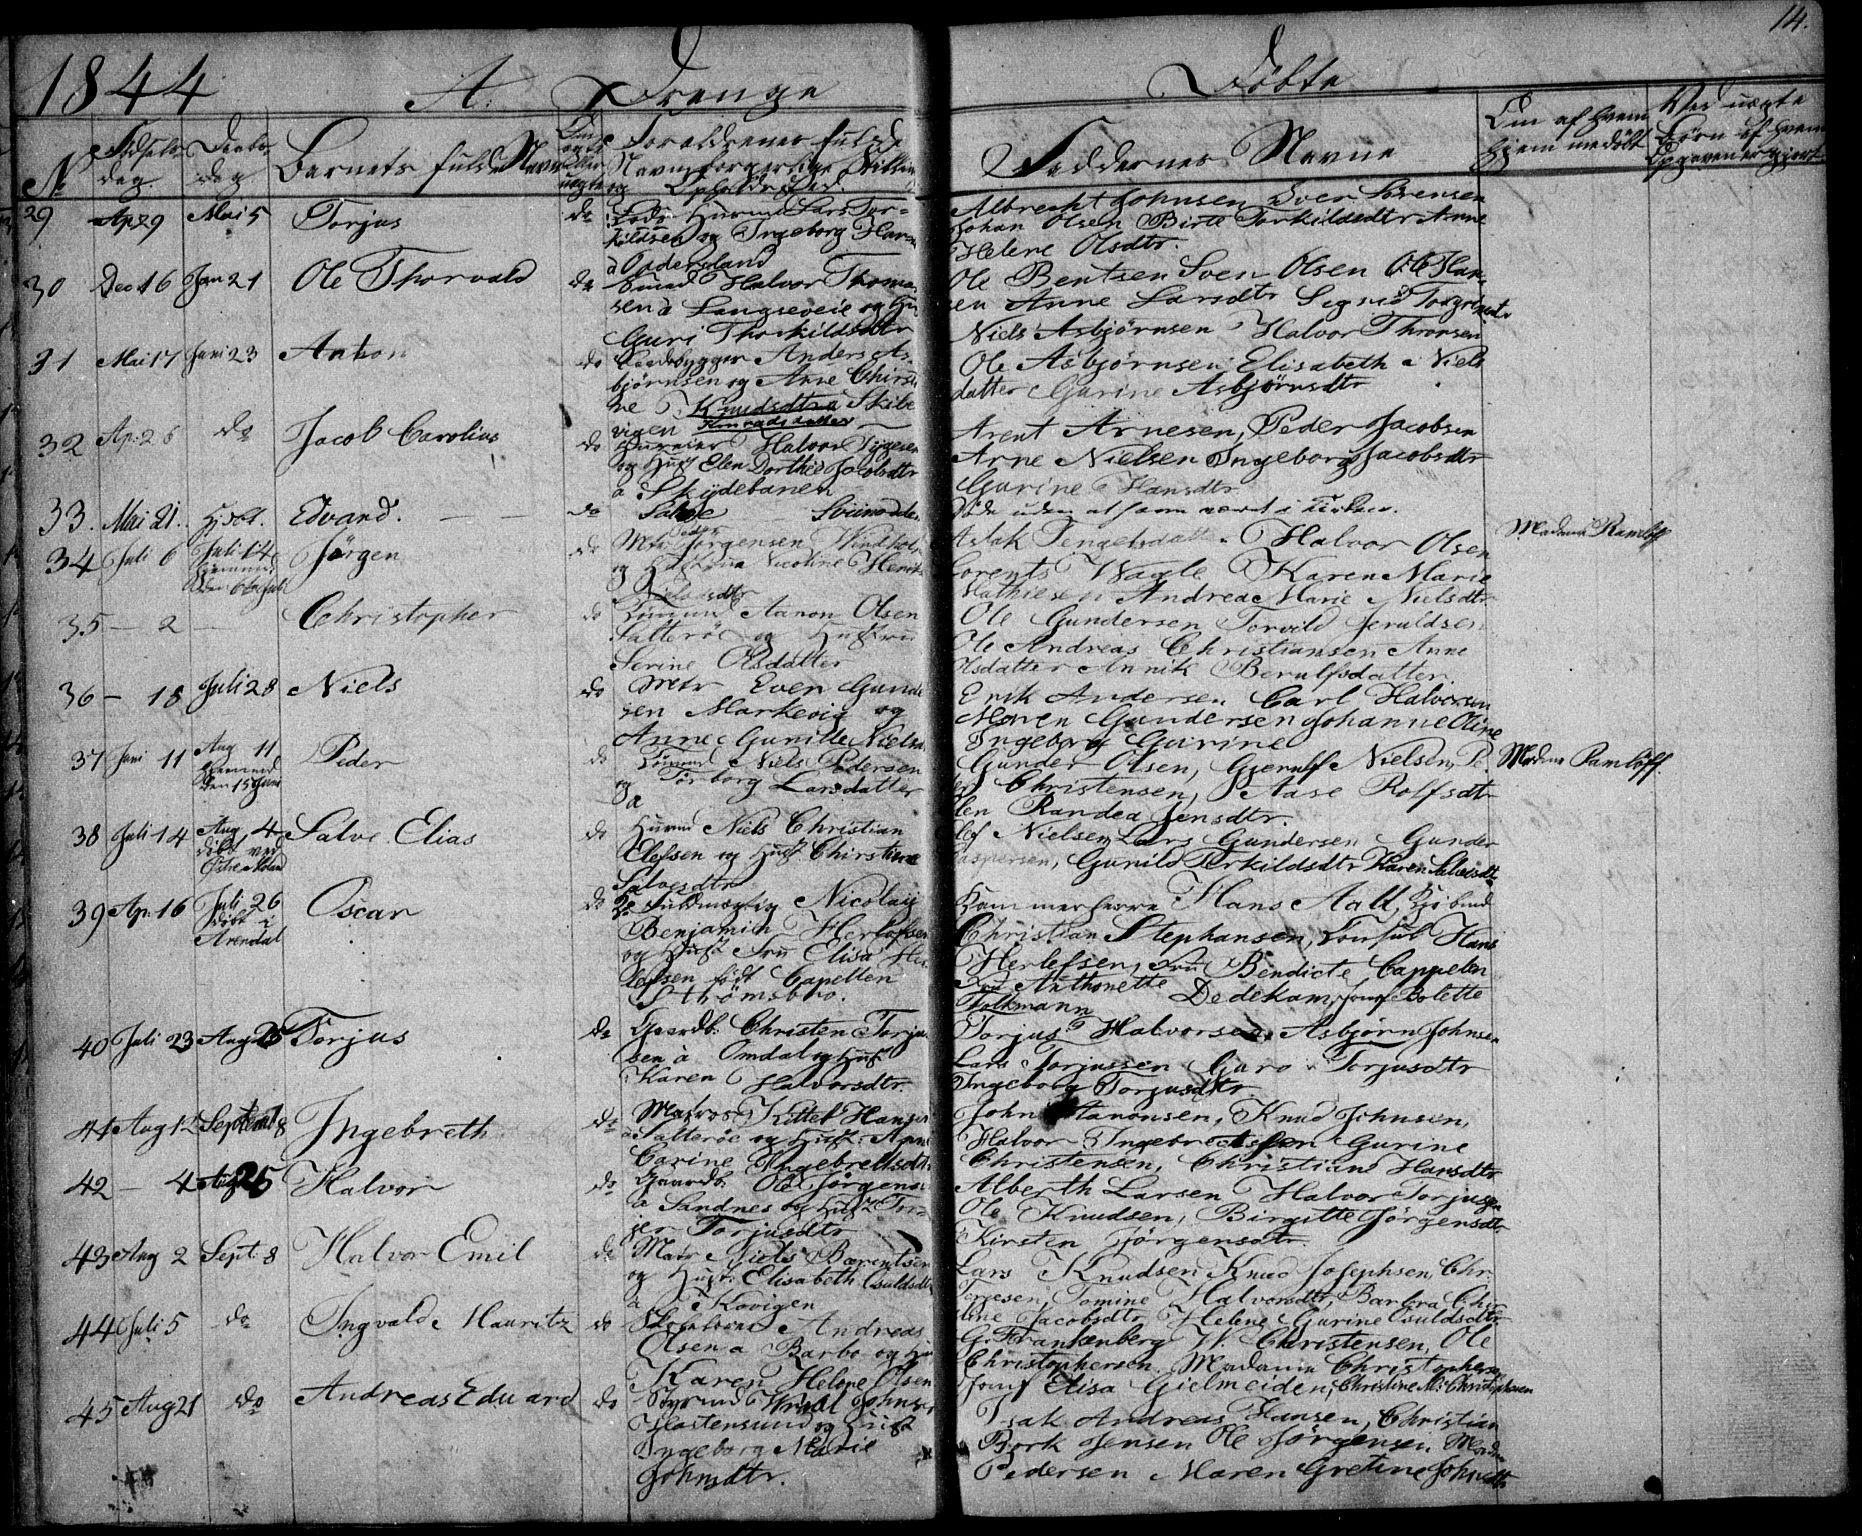 14.
1844 A. Drenge Födte
No Födsels dag Daabs dag Barnets fulde Navn Om ægte eller uægte Forældrenes fulde Navn borgerlige Stilling og Opholdssted. Faddernes Navne Om af hvem hjemmedöbt Ved uægte Börn af hvem Opgaven er gjort.
29 Ap 29 Mai 5 Torjus do Lods Lars Tor-
kildsen og Ingeborg
Albrecht Johnsen Sver Sörensen
Johan Olsen Birte Torkildsdtr Anne
Helene Olsdtr.
30 Dec 16 Jan 21 Ole Thorvald do Halvor Thoma
sen à Langsæveie og
Guri Thorkildsdtr
Ole Bentsen Sven Olsen Ole Han
sen Anne Larsdtr Segnes
31 Mai 17 Juni 23 Anton do Anders As-
björnsen og Anne Chirsti
ne Knudsdtr à Skibe
vigen Konradsdatter
Niels Asbjörnsen Halvor Thronsen
Ole Asbjörnsen Elisabeth Niels
datter Gurine Asbjörnsdtr
32 Ap. 26 do Jacob Carolius do Halvor Tygesen
og Hust Elen Dorthe Jacobsdtr
à Skydebanen
Arent Arnesen, Peder Jacobsen
Arne Nielsen Ingeborg Jacobsdtr
Gurine Hansdtr
33. Mai 21. Hjdöbt. Edvard. do
Döde uden at have været i Kirken.
34 Juli 6 Juli 14 Jörgen do Mtr Peder Jörgensen Windholm
og Hustrue Nicoline Henri
Nielsdtr
Aslak Halvor Olsen
Lorents Wagle Karen Marie
Mathiesen Andrea Marie Nielsdtr
Madame Ramlöff
35 - 2 - Christopher do Tömmd Aanon Olsen
Salteröe og Hustrue
Serine Olsdatter
Ole Gundersen Torvild Jeruldsen
Ole Andreas Christiansen Anne
Olsdatter Annik Berulfsdatter.
36 - 18 Juli 28 Niels do Mtr Even Gunde
sen Markeveie og
Anne Gunille Nielsd
Erik Andersen Carl Halvorsen
Maren Gundersen Johanne Oline
Ingeborg Gurine
37 Juni 11 Aug 11 hjemmed den 15 Juni Peder do Tömmd Niels Pedersen
og Torborg Larsdatter
à
Gunder Olsen, Gjeruf Nielsen, Pe
der Christensen, Aase Rolfsdtr
Elen Randea Jensdtr.
Madme Ramlöff.
38 Juli 14 Aug 4 döbt ved Östre Moland Salve Elias do Huusmd Niels Christian
Olefsen og Hust Chirstine
Salvesdtr
Olef Nielsen Lars Gundersen Gunder
Caspersen, Gunild Terkildsdtr Karen Salvesdtr
39 Ap. 16 Juli 26 döbt i Arendal Oscar do Fuldmægtig Nicolay
Benjamin Herlofsen
og Hust Fru Elisa Her
lofsen födt Capellen
Strömsboe.
Kammerherre Hans Aall, Kjöbmd
Christian Stephansen, Consul Hans
Herlefsen, Fru Bendicte Cappelen
Fru Anthonette Dedekam, Jomf Bolette
Folkmann
40 Juli 23 Aug 25 Torjus do Gaardb. Christen Torju
sen à Omdal og Hust
Karen Halvorsdtr.
Torjus Halvorsen Asbjörn Johnsen
Lars Torjussen Guro Torjusdtr
Ingeborg Torjusdtr
41 Aug 12 Septemb 8 Ingebreth do Matros Kittel Hansen
à Salteröe og Hust: Anne
Carine Ingebrettsdtr
John Aanonsen, Knud Johnsen,
Halvor Ingebrethsen Gurine
Christensen, Christiane Hansdtr
42 - 4 Aug 25 Halvor do Gaardb. Ole Jörgensen
à Sandnes og Hust Tor-
jer Torjusdtr
Alberth Larsen Halvor Torjusen
Ole Knudsen, Birgitte Jörgensdtr
Kirsten Jörgensdtr
43 Aug 2 Sept 8 Halvor Emil do Matr Niels Bærentsen
og Hust. Elisabeth Osuldsdtr
à Kovigen
Lars Knudsen Knud Josephsen, Chr.
Terjesen, Tomine Halvorsdtr, Barbra Chri
tine Jacobsdtr Helene Gurine Osuldsdtr
44 Juli 5 do Ingvald Mauritz do Andreas
Olsen à Barbo og Hu
Karen Helene Olsen
G. Frankenberg W. Christensen, Ole
Christophersen Madame Christophers
Jomf Elisa Gielmeiden, Christine M: Christophersen
45 Aug 21 do Andreas Eduard do Styrmd Johnsen
Hastensund og Hust
Ingeborg Marie
Johnsdtr.
Isak Andreas Hansen, Christian
Bork Jensen Ole Jörgensen Mad
Pedersen Maren Gretine Johnsdtr